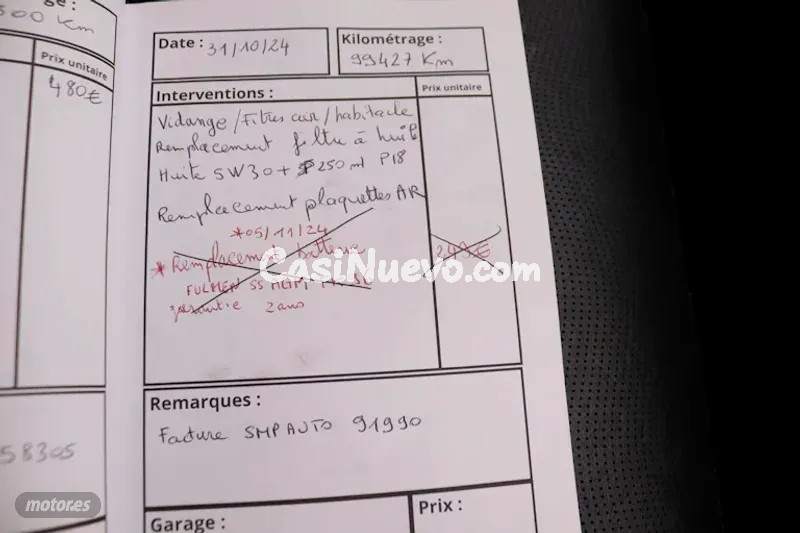 500 Km
Prix unitaire
480€
58305
Date : 31/10/24
Kilométrage :
99427 Km
Interventions :
Prix unitaire
Vidange / Filtres air / habitacle
Remplacement filtre à huile
Huile 5W30 + 250 ml P18
Remplacement plaquettes AR
*05/11/24
* Remplacement batterie
249€
FULMEN SS
garantie 2 ans
CasiNuevo.com
Remarques :
Facture SMPAUTO 91990
Garage :
Prix :
motor.es